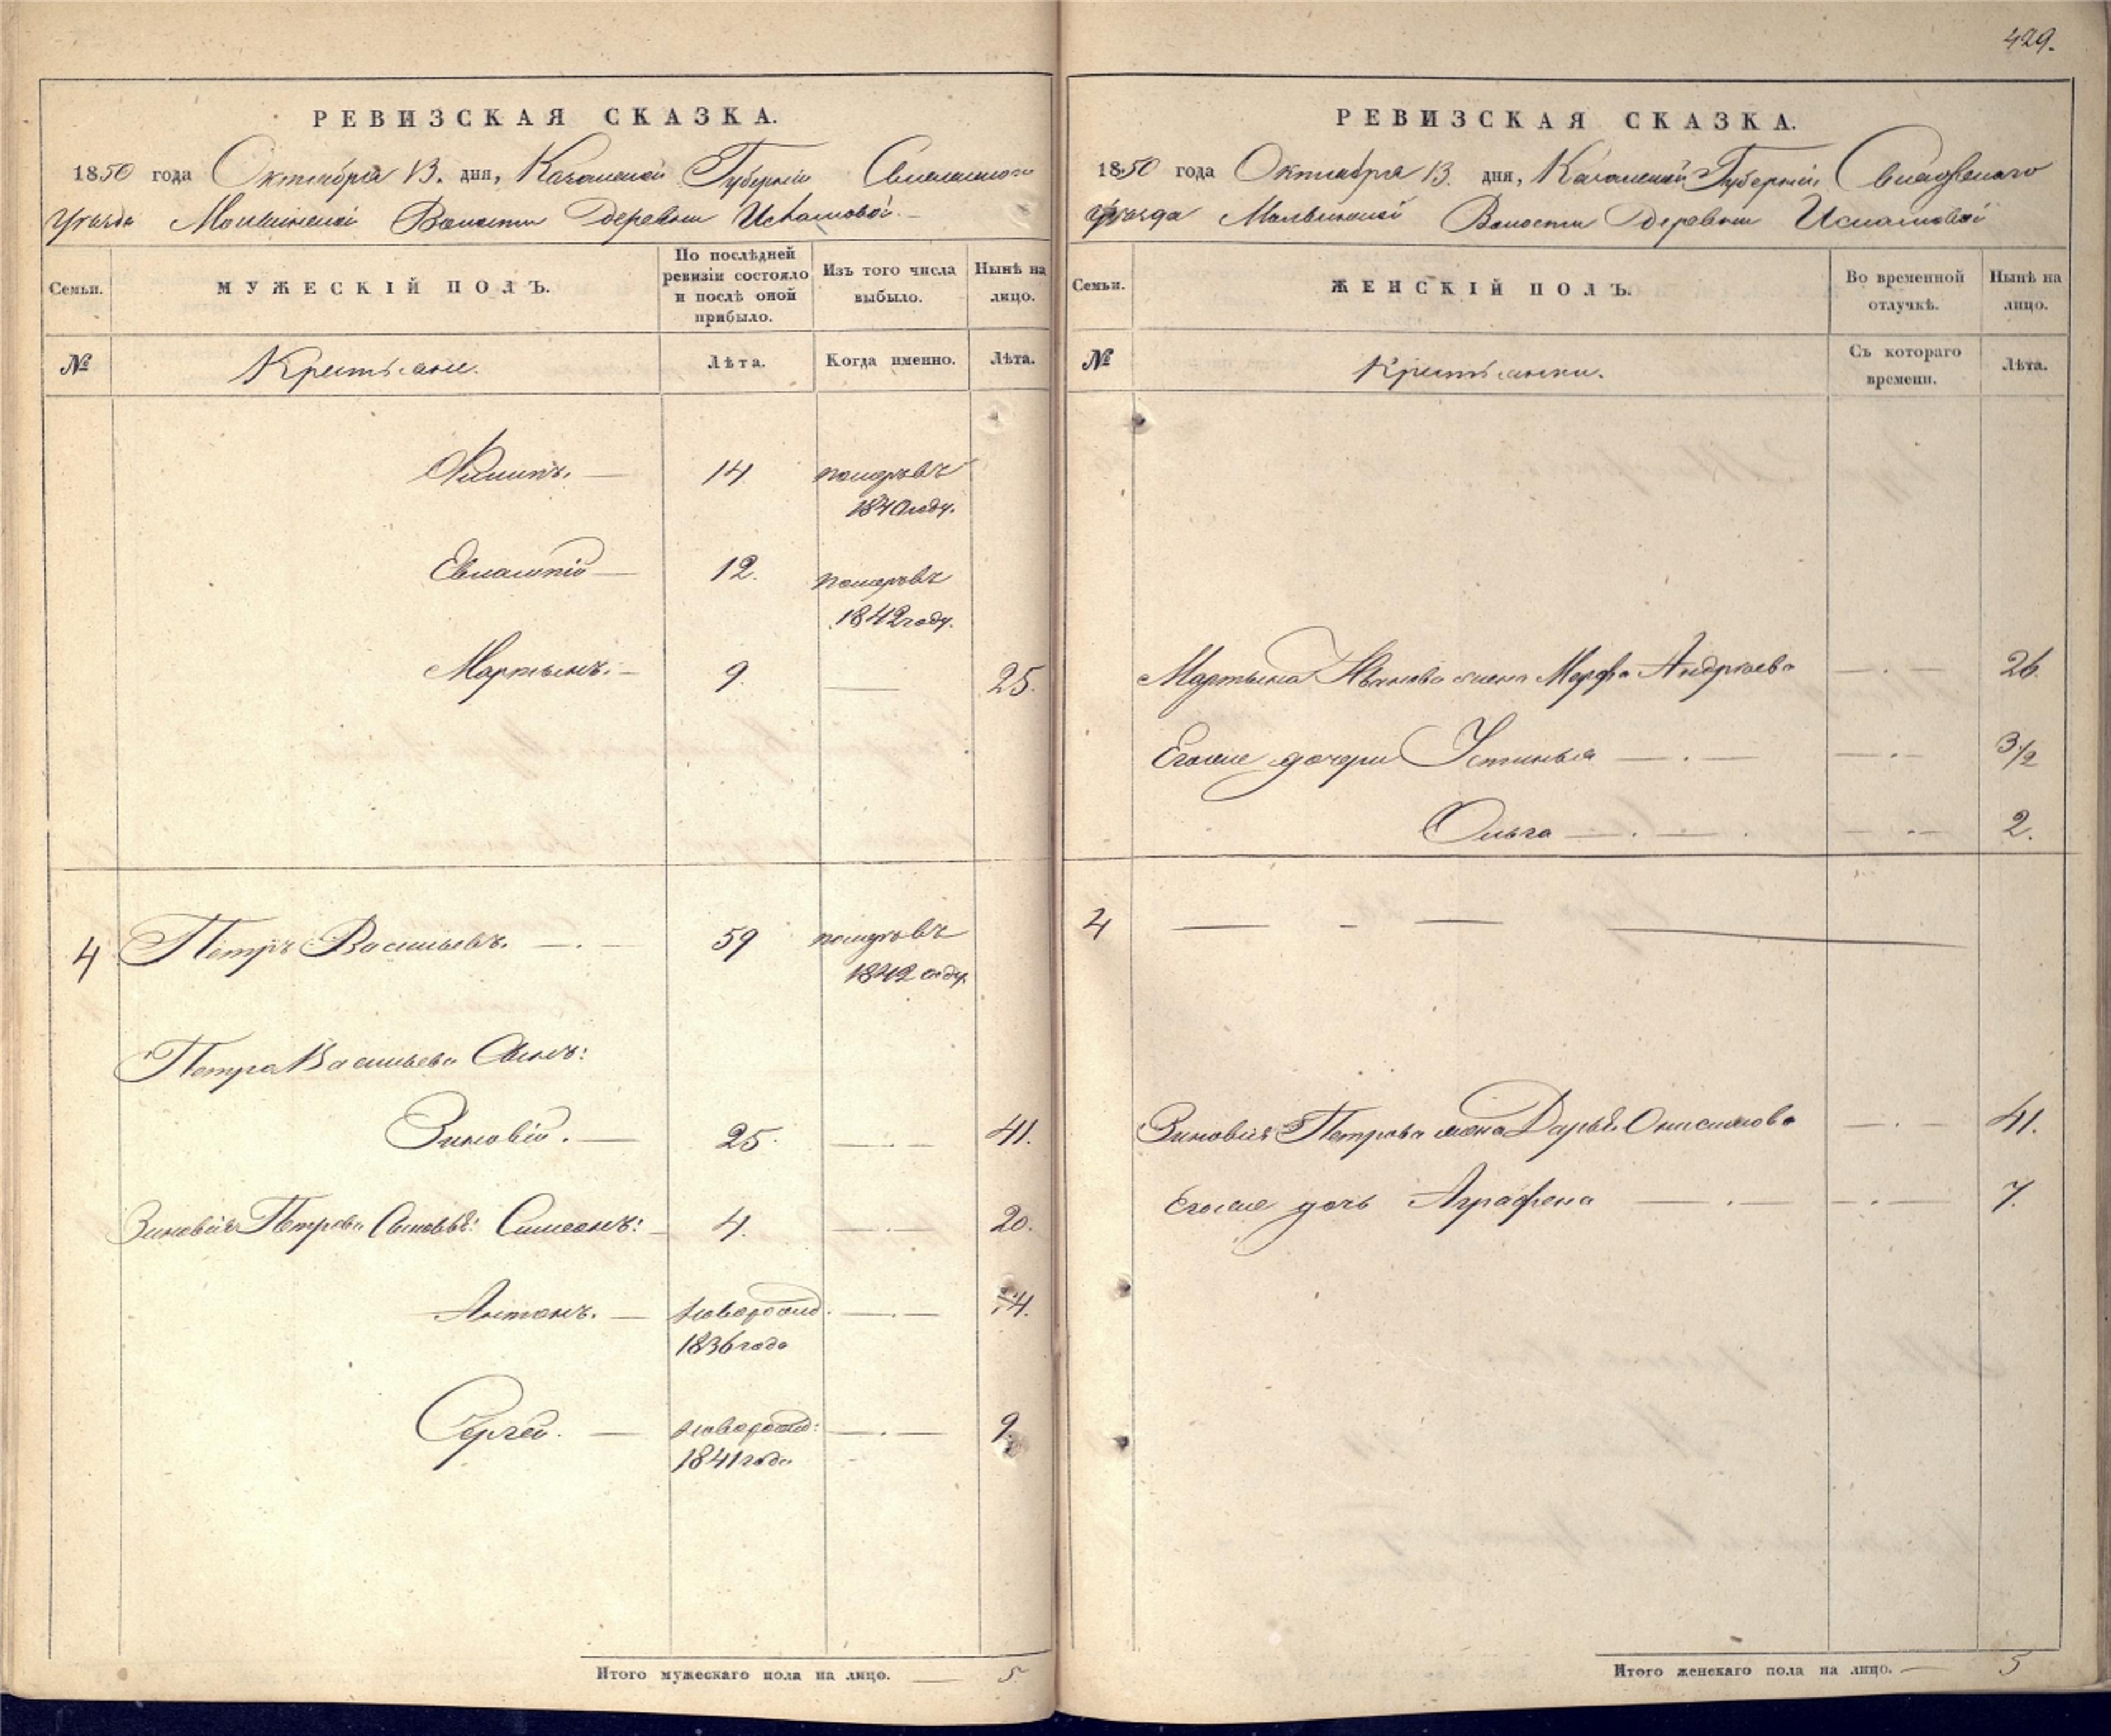 429.
РЕВИЗСКАЯ СКАЗКА.
1850 года Октября 13. дня, Казанской Губернии
Уезда Волости Деревни Исламовой.
Семьи.
МУЖЕСКІЙ ПОЛЪ.
По послѣдней ревизіи состояло и послѣ оной прибыло.
Изъ того числа выбыло.
Нынѣ на лицо.
№
Крестьяне.
Лѣта.
Когда именно.
Лѣта.
Филипъ. — 14. померъ въ
1840 году.
12. померъ въ
1842 году.
Мартынъ. — 9. — 25.
4 Петръ Васильевъ. — . — 59 померъ въ
1842 году.
Петра Васильева Сынъ:
Зиновій. — 25. — . — 41.
Зиновія Петрова Сыновья: Симеонъ: — 4. — . — 20.
Антонъ. — новорожд. — . — 14.
1836 года
Сергей. — новорожд: — . — 9.
1841 года
Итого мужескаго пола на лицо. — 5
РЕВИЗСКАЯ СКАЗКА.
1850 года Октября 13. дня, Казанской Губерніи, Свіяжскаго
Уезда Волости Деревни Исламовой
Семьи.
ЖЕНСКІЙ ПОЛЪ.
Во временной отлучкѣ.
Нынѣ на лицо.
№
Крестьянки.
Съ котораго времени.
Лѣта.
Мартына Иванова жена Марфа Андреева — . — 26.
Егоже дочери Устинья — . — — . — 3 1/2
Ольга — . — . — . — 2.
4 — - — —
Зиновія Петрова жена Дарья Онисимова — . — 41.
Егоже дочь Аграфена — . — — . — 7.
Итого женскаго пола на лицо. — 5